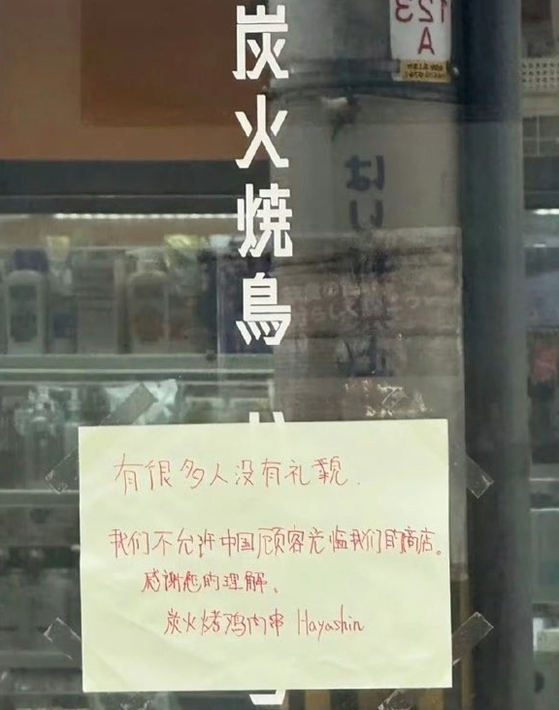 炭火焼鳥
123
A
はり
有很多人没有礼貌.
我们不允许中国顾客光临我们的商店。
感谢您的理解、
炭火烤鸡肉串 Hayashin